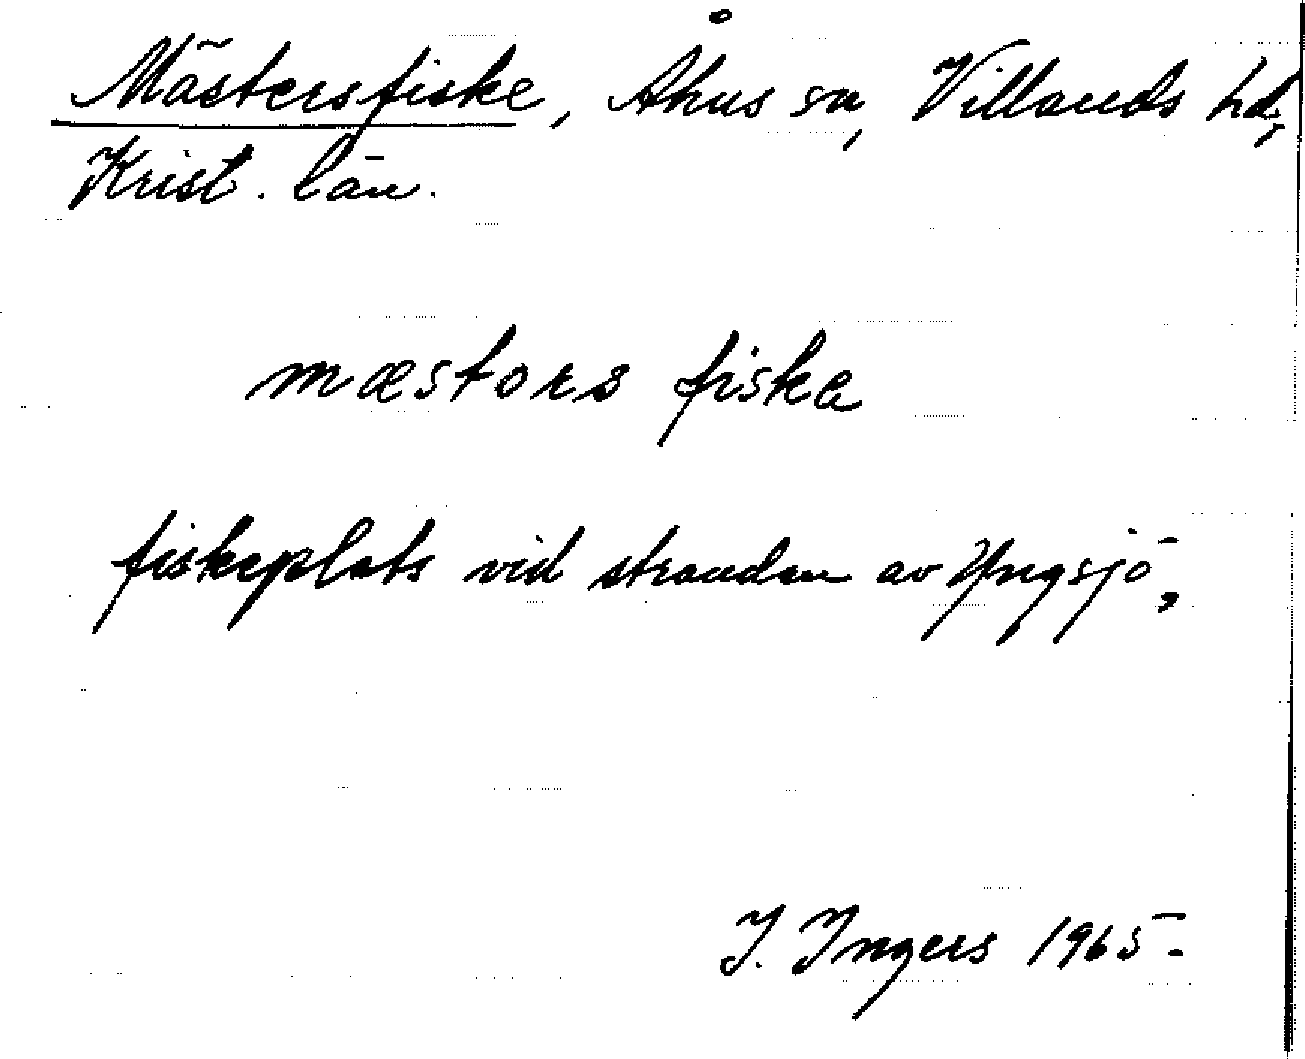 Mästersfiske, Åhus sn, Villands hd,
Krist. län.
mæstors fiska
fiskeplats vid stranden av Yngsjö.
I. Ingers 1965.